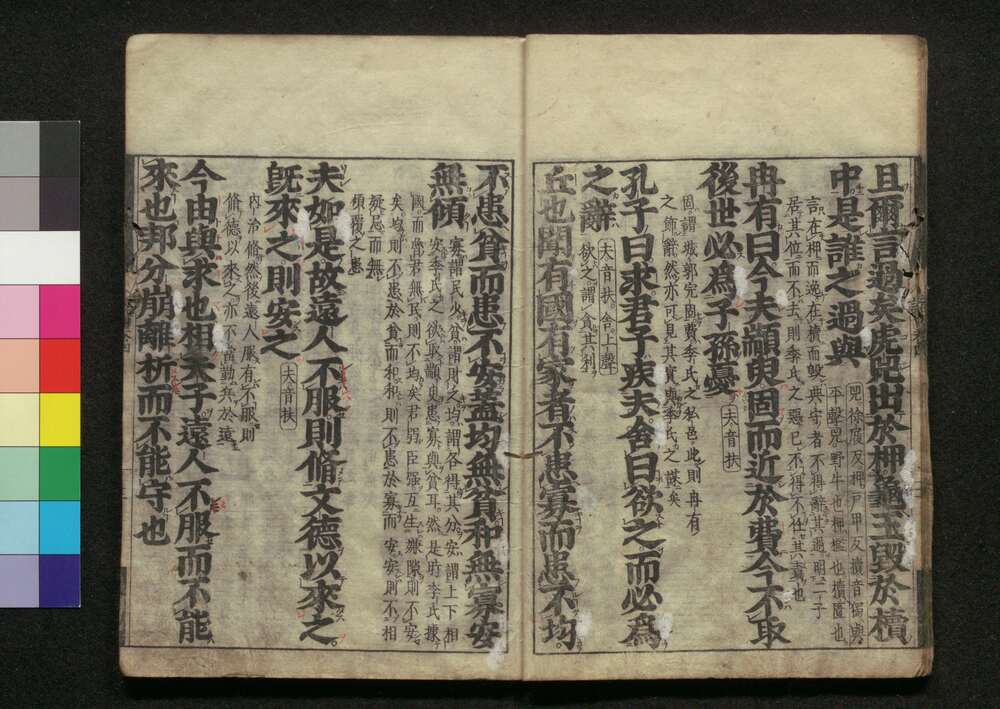 且爾言過矣虎兕出於柙龜玉毀於櫝
中是誰之過與
兕徐履反柙戸甲反櫝音獨與
平聲兕野牛也柙檻也櫝匱也
言在柙而逸在櫝而毀典守者不得辭其過明二子
居其位而不去則季氏之惡己不得不任其責也
冉有曰今夫顓臾固而近於費今不取
後世必爲子孫憂
夫音扶
固謂城郭完固費季氏之私邑此則冉有
之飾辭然亦可見其實與季氏之謀矣
孔子曰求君子疾夫舍曰欲之而必爲
之辭
夫音扶舍上聲
欲之謂貪其利
丘也聞有國有家者不患寡而患不均
不患貧而患不安蓋均無貧和無寡安
無傾
寡謂民少貧謂財乏均謂各得其分安謂上下相
安季氏之欲取顓臾患寡與貧耳然是時季氏據
國而魯君無民則不均矣君弱臣强互生嫌隙則不安
矣均則不患於貧而和和則不患於寡而安安則不相
疑忌而無
傾覆之患
夫如是故遠人不服則脩文德以來之
旣來之則安之
夫音扶
内治脩然後遠人服有不服則
脩德以來之亦不當勤兵於遠
今由與求也相夫子遠人不服而不能
來也邦分崩離析而不能守也